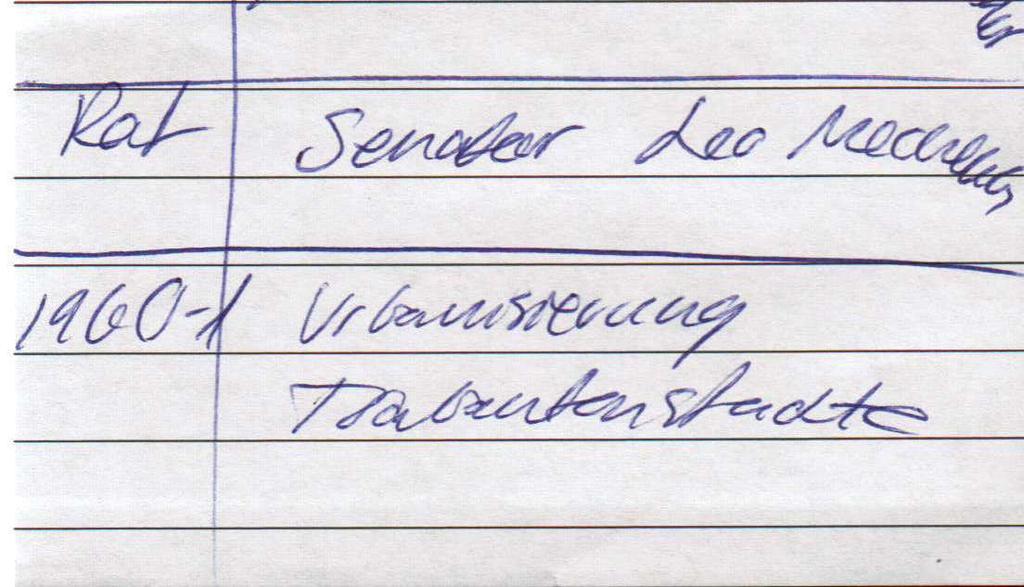 Rat Senator Leo
1960-1 Urbanisierung
Trabantenstädte